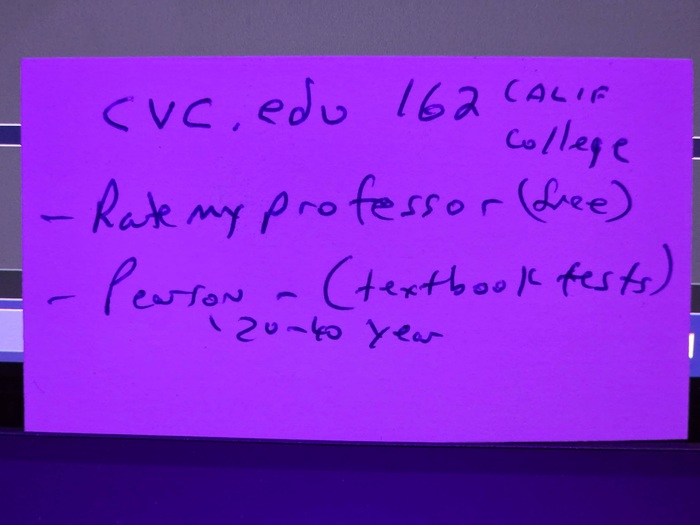 CVC.edu 162 CALIF
college
- Rate my professor (free)
- Pearson - (textbook tests)
20-40 year